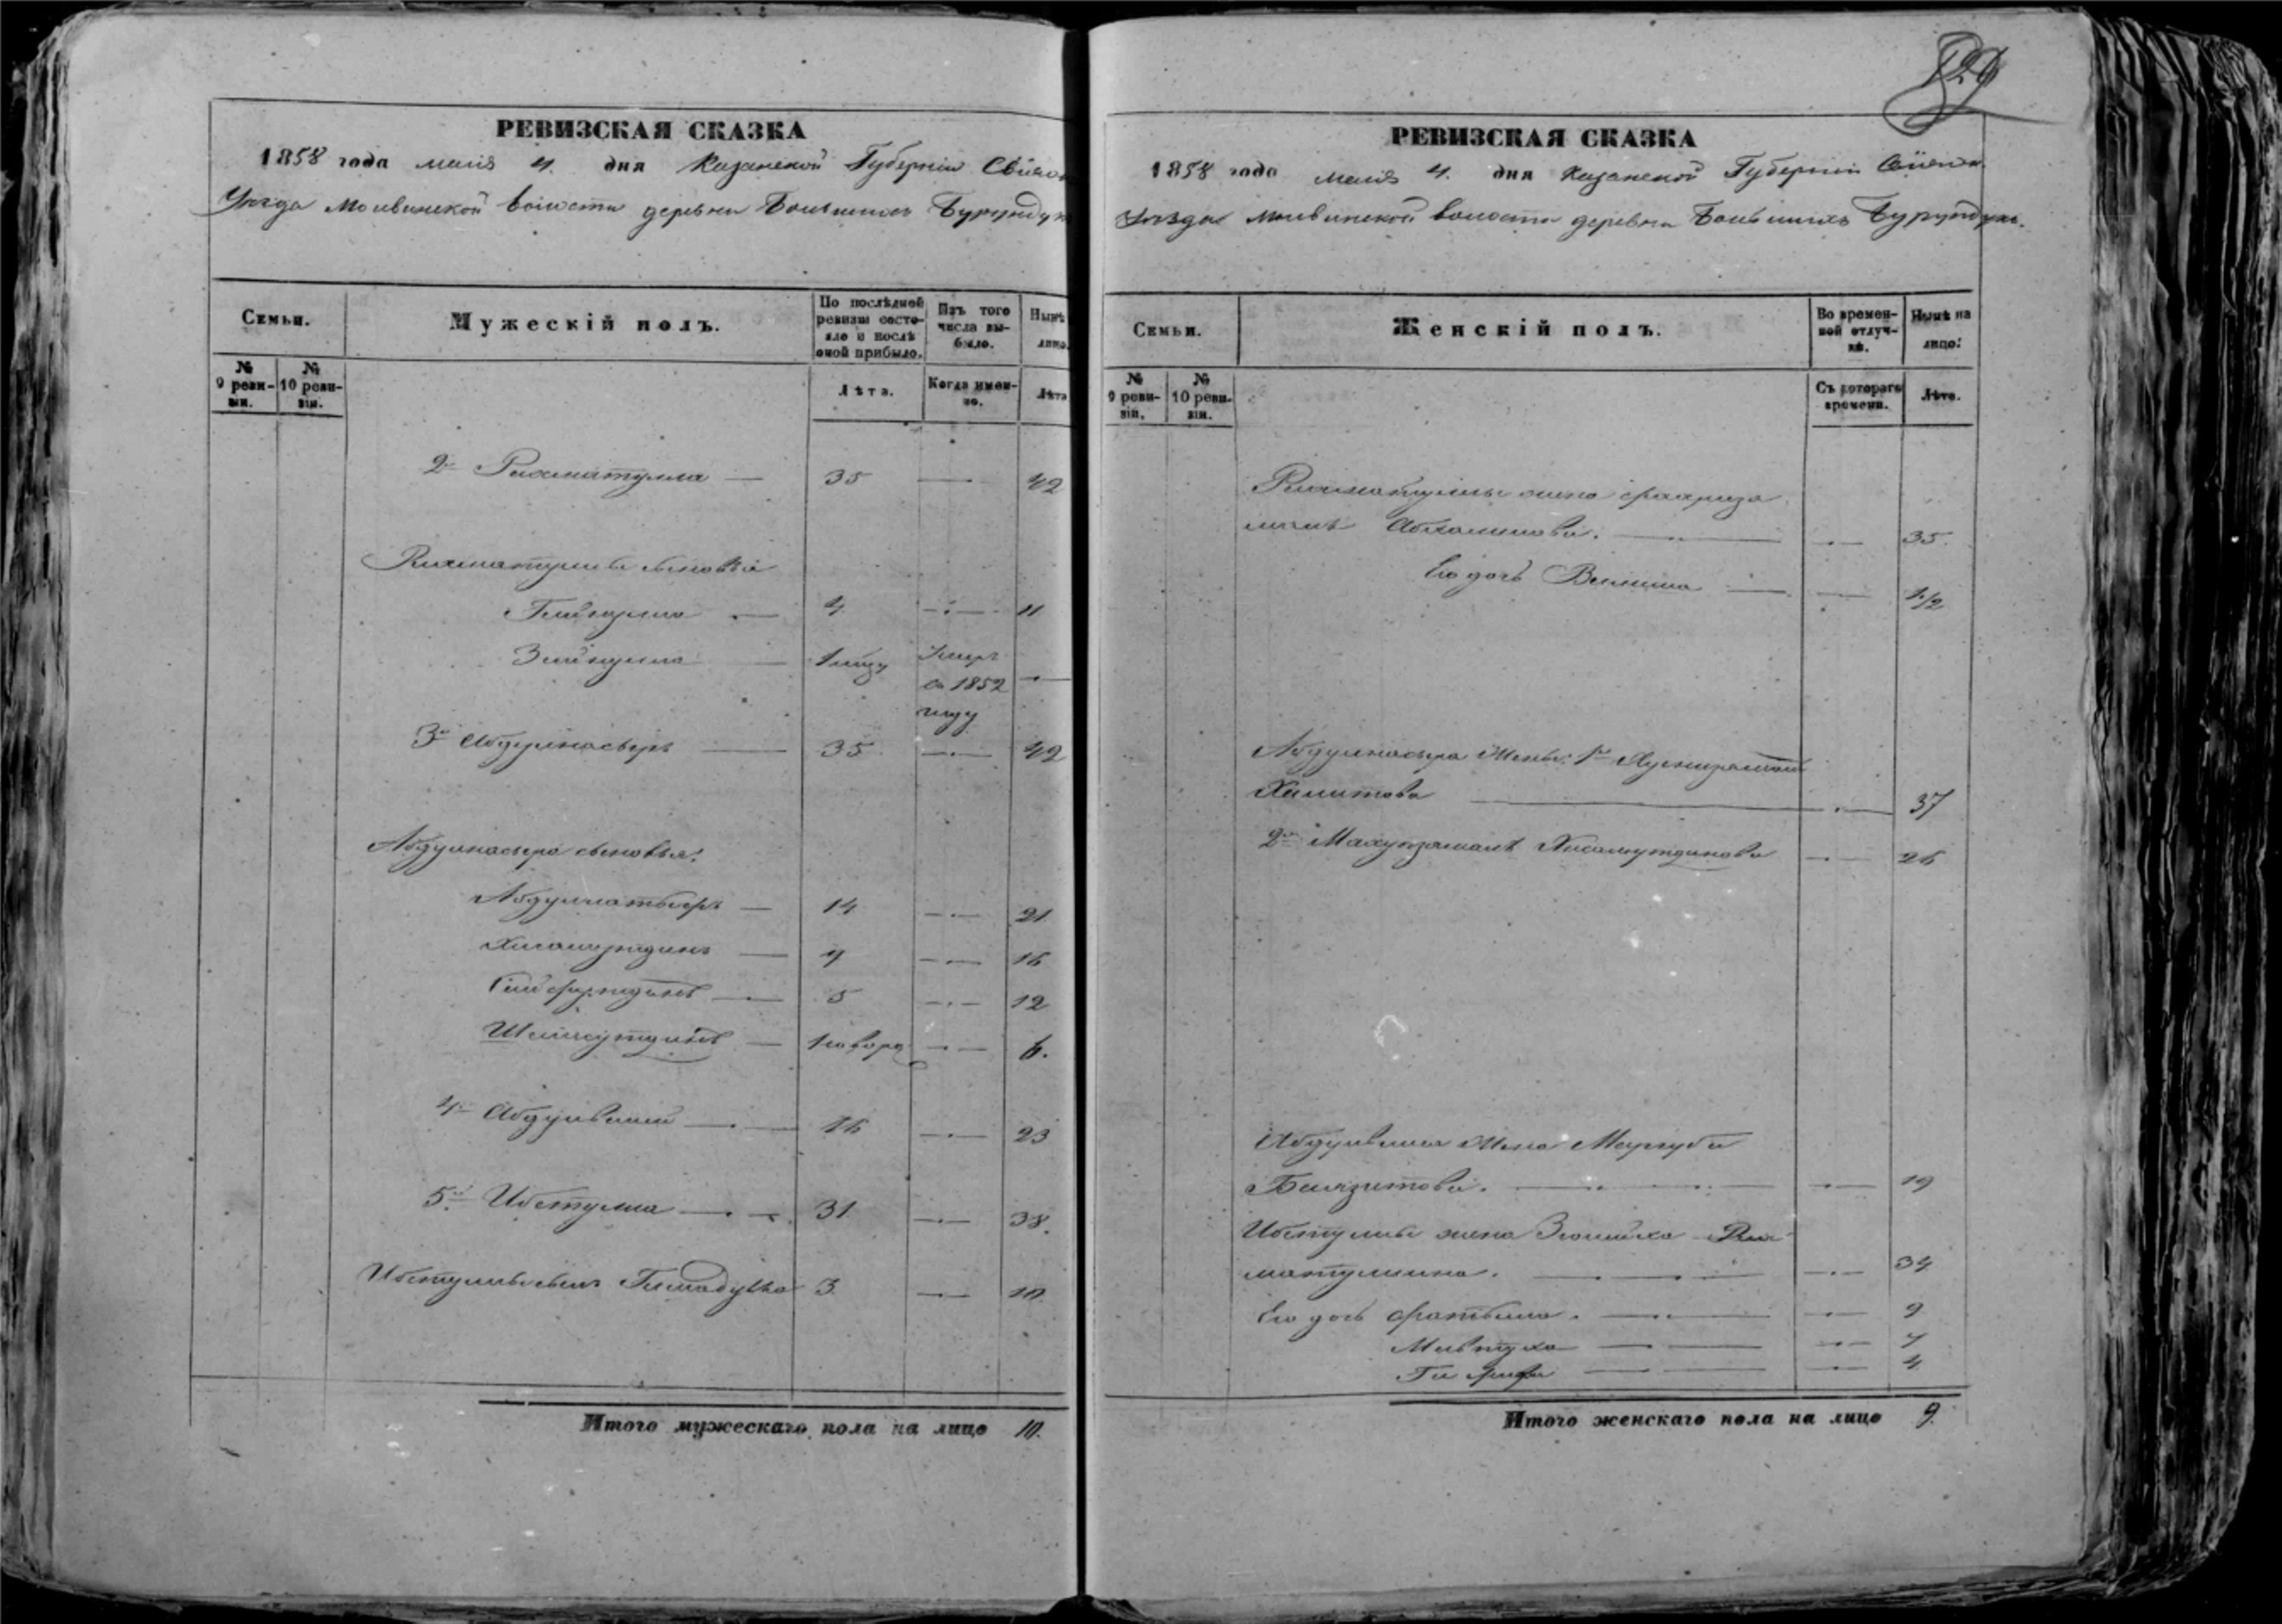 РЕВИЗСКАЯ СКАЗКА
1858 года мая 4 дня Казанской Губернии Свіяж
Уезда Молвинской волости деревни Большихъ Бурундук
Семьи.
Мужескій полъ.
По послѣдней ревизіи состояло и послѣ оной прибыло.
Изъ того числа выбыло.
Нынѣ лицо.
№ 9 ревизіи.
№ 10 ревизіи.
Лѣта.
Когда именно.
Лѣта
2й Рахматулла — 35 — 42
Рахматуллы сыновья
4 — 11
Зайнулла — 1 умеръ въ 1852 году —
3й Абдулнасыръ — 35 — 42
Абдулнасыра сыновья:
14 — 21
Хисамутдинъ — 9 — 16
5 — 12
Шамсутдинъ — 1 новорож — 6.
4й Абдулвалий — 16 — 23
5й Ибетулла — 31 — 38.
Ибетуллы сынъ 3 — 10
Итого мужескаго пола на лицо 10.
529
РЕВИЗСКАЯ СКАЗКА
1858 года мая 4 дня Казанской Губернии Свіяж
Уезда Молвинской волости деревни Большихъ Бурундук.
Семьи.
Женскій полъ.
Во временной отлучкѣ.
Нынѣ на лицо.
№ 9 ревизіи.
№ 10 ревизіи.
Съ котораго времени.
Лѣта.
Рахматуллы жена
35.
Его дочь — 1/2
Абдулнасыра жены: 1я
Халитова — 37
2я Махупзамалъ Хисамутдинова — 26
Абдулвалия жена Маугуба
— 19
Ибетуллы жена Рах
матуллина. — 34
Его дочь Фатыма. — 9
Мавтуха — 7
— 4
Итого женскаго пола на лицо 9.